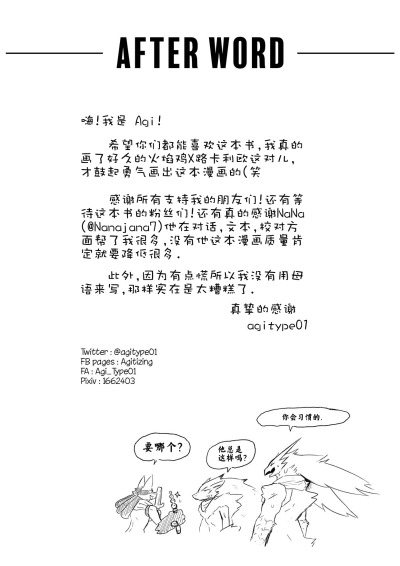 AFTER WORD
嗨!我是 Agi!
希望你们都能喜欢这本书,我真的
画了好久的火焰鸡X路卡利欧这对儿,
才鼓起勇气画出这本漫画的(笑
感谢所有支持我的朋友们!还有等
待这本书的粉丝们!还有真的感谢NaNa
(@Nanajana7)他在对话,文本,校对方
面帮了我很多,没有他这本漫画质量肯
定就要降低很多.
此外,因为有点慌所以我没有用母
语来写,那样实在是太糟糕了.
真挚的感谢
agitype01
Twitter : @agitype01
FB pages : Agitizing
FA : Agi_Type01
Pixiv : 1662403
你会习惯的.
要哪个?
他总是
这样吗?